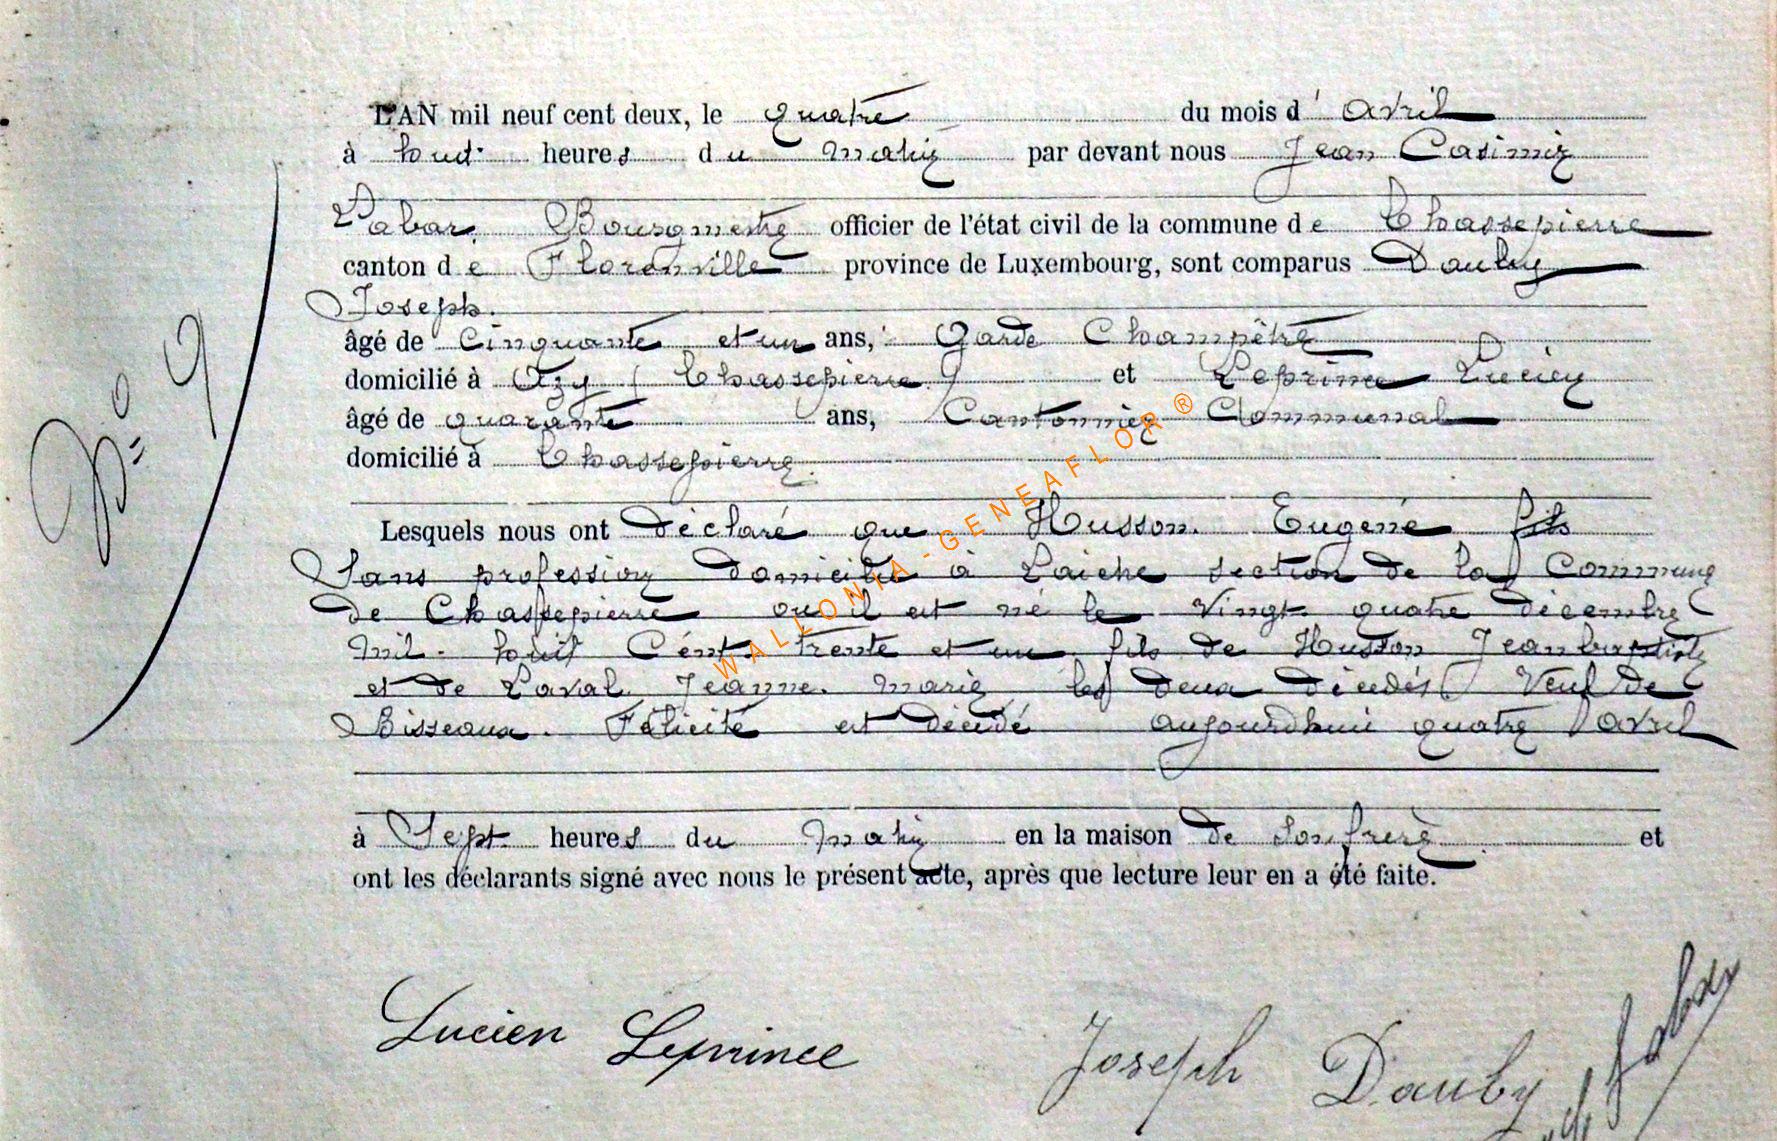 L'AN mil neuf cent deux, le quatre du mois d' avril
à huit heures du matin par devant nous Jean Casimir
Labar, Bourgmestre officier de l'état civil de la commune de Chassepierre
canton de Florenville province de Luxembourg, sont comparus Dauby
Joseph.
âgé de cinquante et un ans, Garde Champêtre
domicilié à Azy (Chassepierre) et Leprince Lucien
âgé de quarante ans, Cantonnier Communal
domicilié à Chassepierre.
Lesquels nous ont déclaré que Husson. Eugène fils
Sans profession domicilié à Laiche section de la Commune
de Chassepierre ou il est né le vingt quatre décembre
Mil. huit Cent. trente et un fils de Husson Jean baptiste
et de Laval Jeanne. Marie les deux décédés Veuf de
Bisseaux. Félicité est décédé aujourdhui quatre avril
à Sept heures du matin en la maison de son frère et
ont les déclarants signé avec nous le présent acte, après que lecture leur en a été faite.
N° 9
WALLONIA-GENEAFLOR®
Lucien Leprince Joseph Dauby Labar